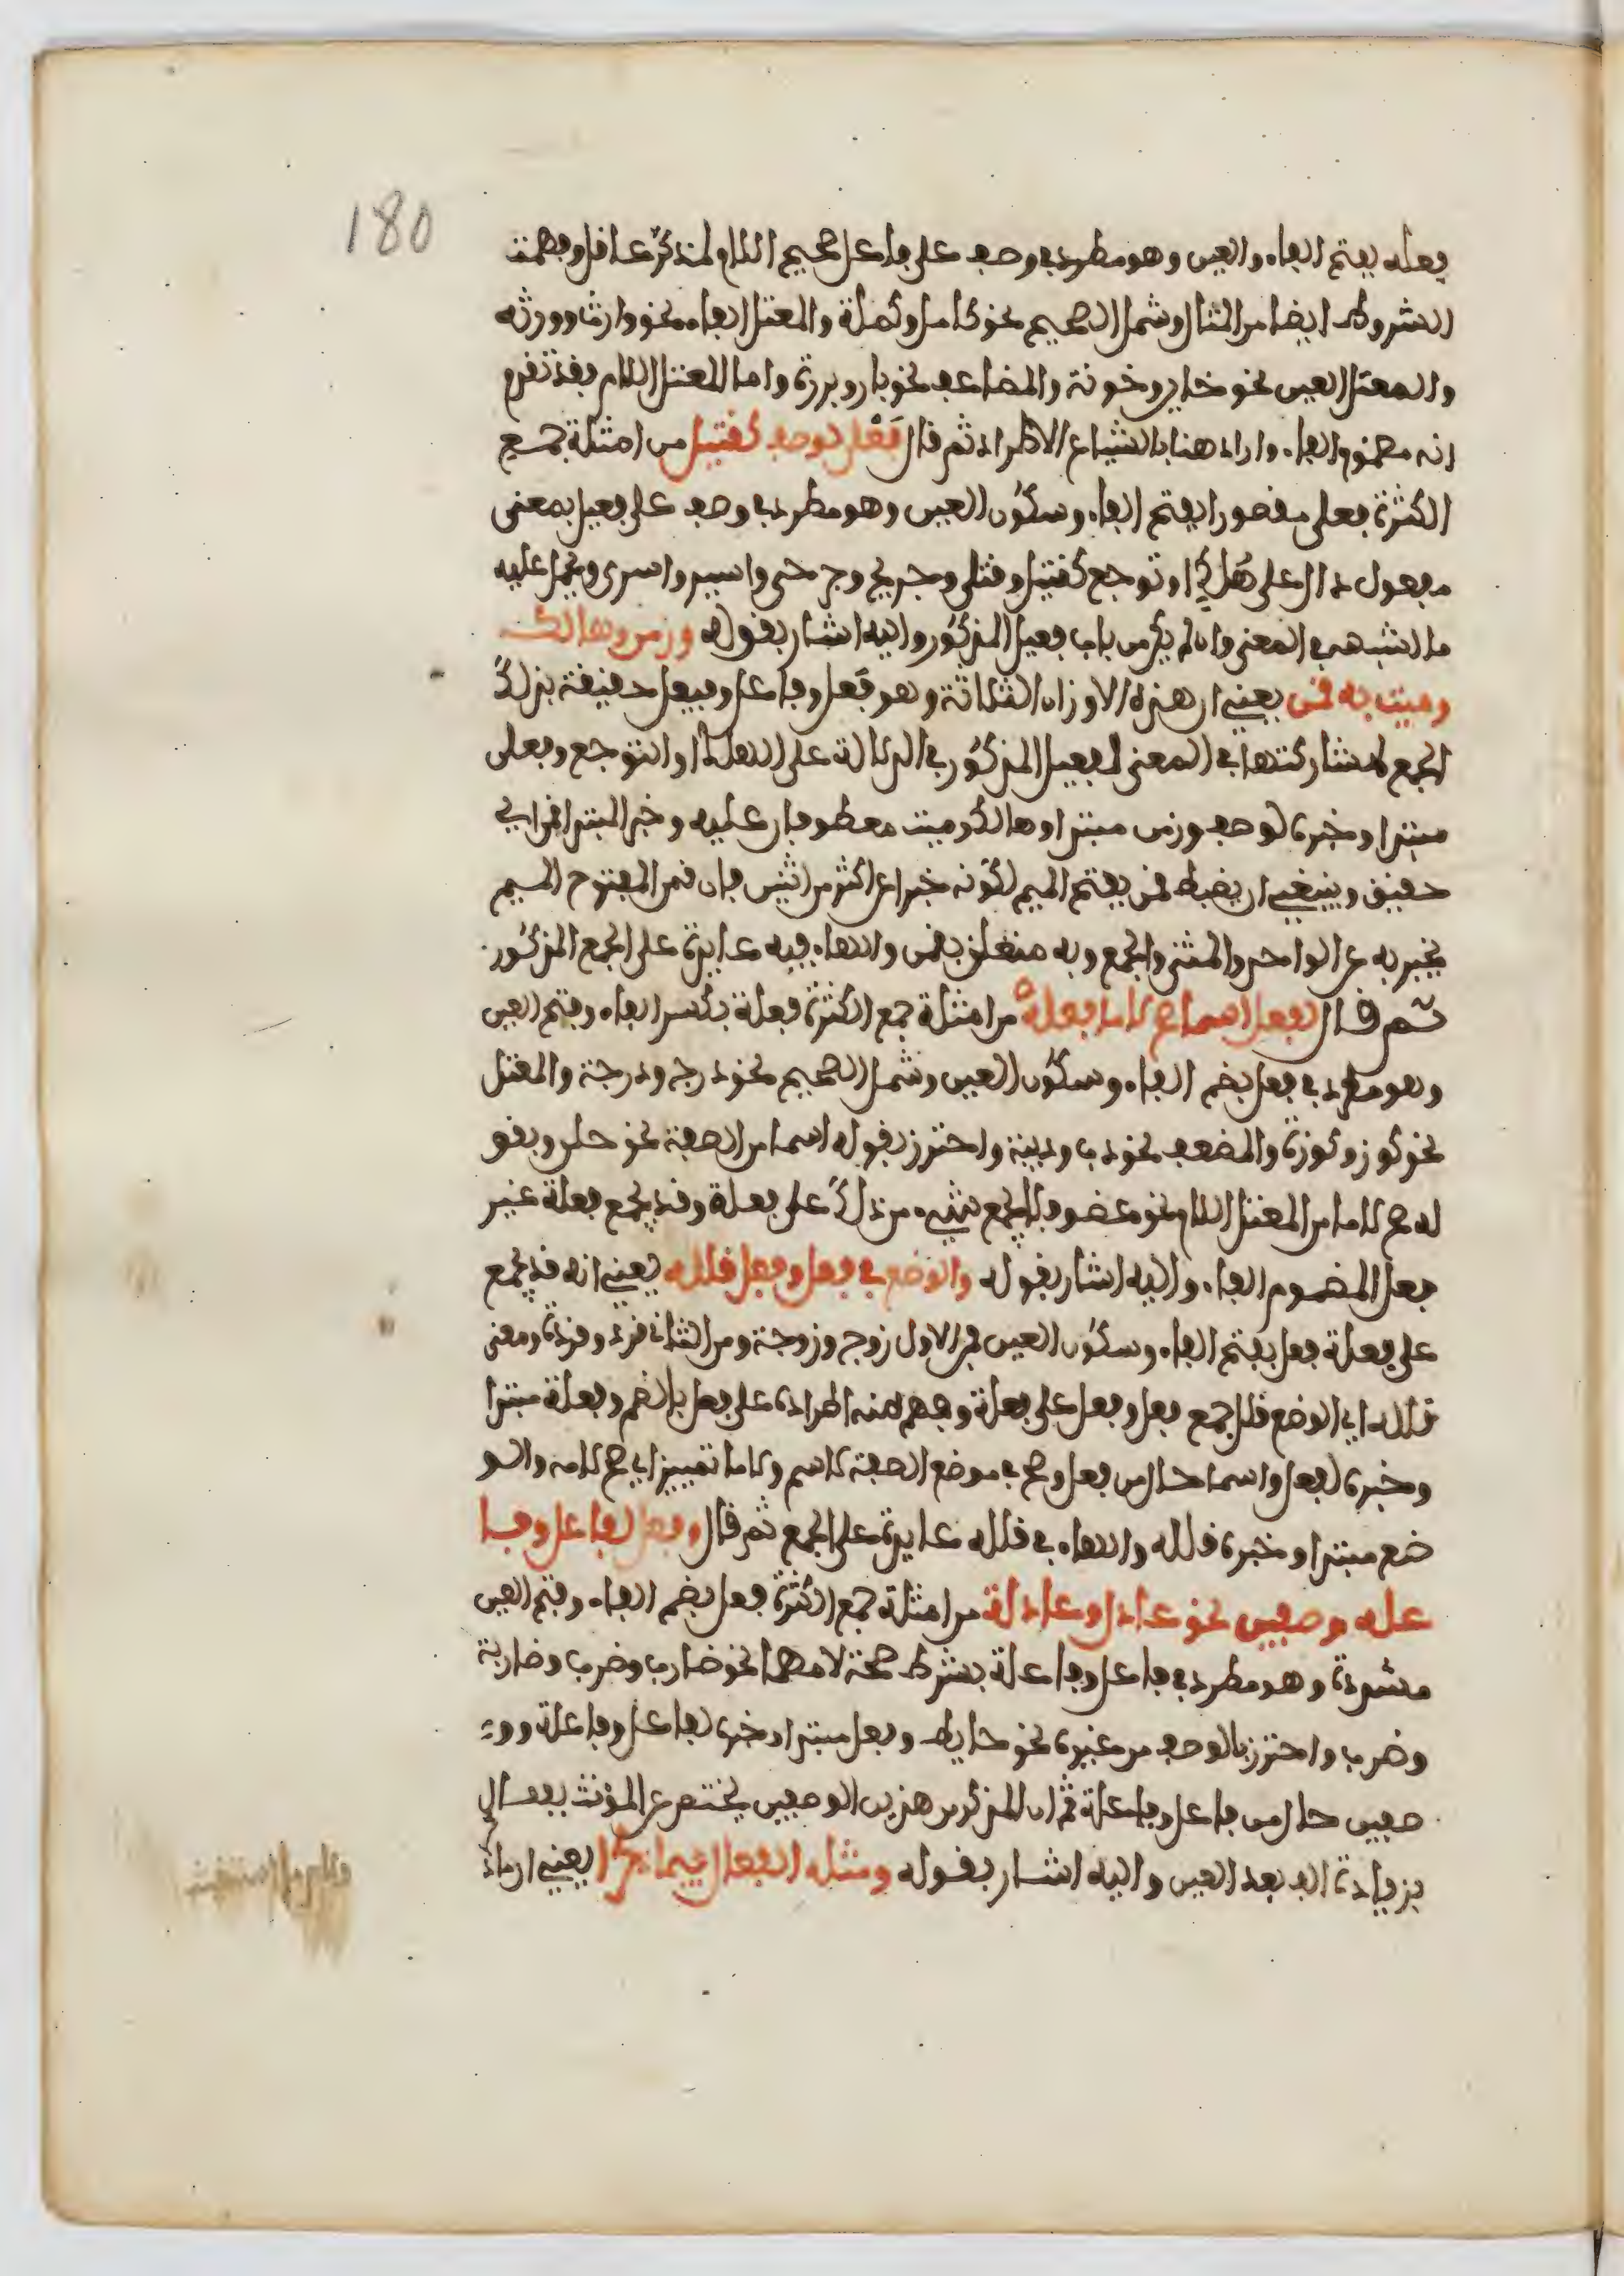 180
فعله بفتح الفاء والعين وهو مطرد في وصف على فاعل صحيح اللام لمذكر عاقل وفهمت
الشروط ايضا من المثال وشمل الصحيح نحو كامل وكملة والمعتل الفاء نحو وارث وورثه
والمعتل العين نحو خاين وخونة والمضاعف نحو بار وبررة واما المعتل اللام فقد تقدم
انه مضموم الفاء واراد هنا بالشياع الاطراد ثم قال فعلى لوصف كقتيل من امثلة جمع
الكثرة فعلى مقصورا بفتح الفاء وسكون العين وهو مطرد في وصف على فعيل بمعنى
مفعول دال على هلك او توجع كقتيل وقتلى وجريح وجرحى واسير واسرى ويحمل عليه
ما اشبهه في المعنى وان لم يكن من باب فعيل المذكور واليه اشار بقوله وزمن وهالك
وميت به قمن يعني ان هذه الاوزان الثلاثة وهو فعل وفاعل وفيعل حقيقة بذلك
الجمع لمشاركتها في المعنى لفعيل المذكور في الدلالة على الهلك او التوجع وفعلى
مبتدا وخبره لوصف وزمن مبتدا وهالك وميت معطوفان عليه وخبر المبتدا قمن اي
حقيق وينبغي ان يضبط قمن بفتح الميم لكونه خبرا عن اكثر من اثنين فان قمن المفتوح الميم
يخبر به عن الواحد والمثنى والجمع وبه متعلق بقمن والهاء فيه عايدة على الجمع المذكور
ثم قال لفعل اسما صح لاما فعله من امثلة جمع الكثرة فعلة بكسر الفاء وفتح العين
وهو مطرد في فعل بضم الفاء وسكون العين وشمل الصحيح نحو درج ودرجة والمعتل
نحو كوز وكوزة والمضعف نحو دب ودببة واحترز بقوله اسما من الصفة نحو حلو وبقو
له صح لاما من المعتل اللام نحو عضو فلا يجمع شيء من ذلك على فعلة وقد يجمع فعلة غير
فعل المضموم الفاء واليه اشار بقوله والوضع في فعل وفعل قلله يعني انه قد يجمع
على فعلة فعل بفتح الفاء وسكون العين فمن الاول زوج وزوجة ومن الثاني قرد وقردة ومعنى
قلله اي الوضع قلل جمع فعل وفعل على فعلة وفهم منه اطراده على فعل بالضم وفعلة مبتدا
وخبره لفعل واسما حال من فعل وصح في موضع الصفة لاسم ولاما تمييز اي صح لامه والو
ضع مبتدا وخبره قلله والهاء في قلله عايدة على الجمع ثم قال وفعل لفاعل وفا
عله وصفين نحو عادل وعادلة من امثلة جمع الكثرة فعل بضم الفاء وفتح العين
مشددة وهو مطرد في فاعل وفاعلة بشرط صحة لامهما نحو ضارب وضرب وضاربة
وضرب واحترز بالوصف من غيره نحو حايط وفعل مبتدا وخبره لفاعل وفاعلة وو
صفين حال من فاعل وفاعلة ثم ان المذكر من هذين الوصفين يختص عن المؤنث بفعال
بزيادة الف بعد العين واليه اشار بقوله ومثله الفعال فيما ذكرا يعني ان ما ذ